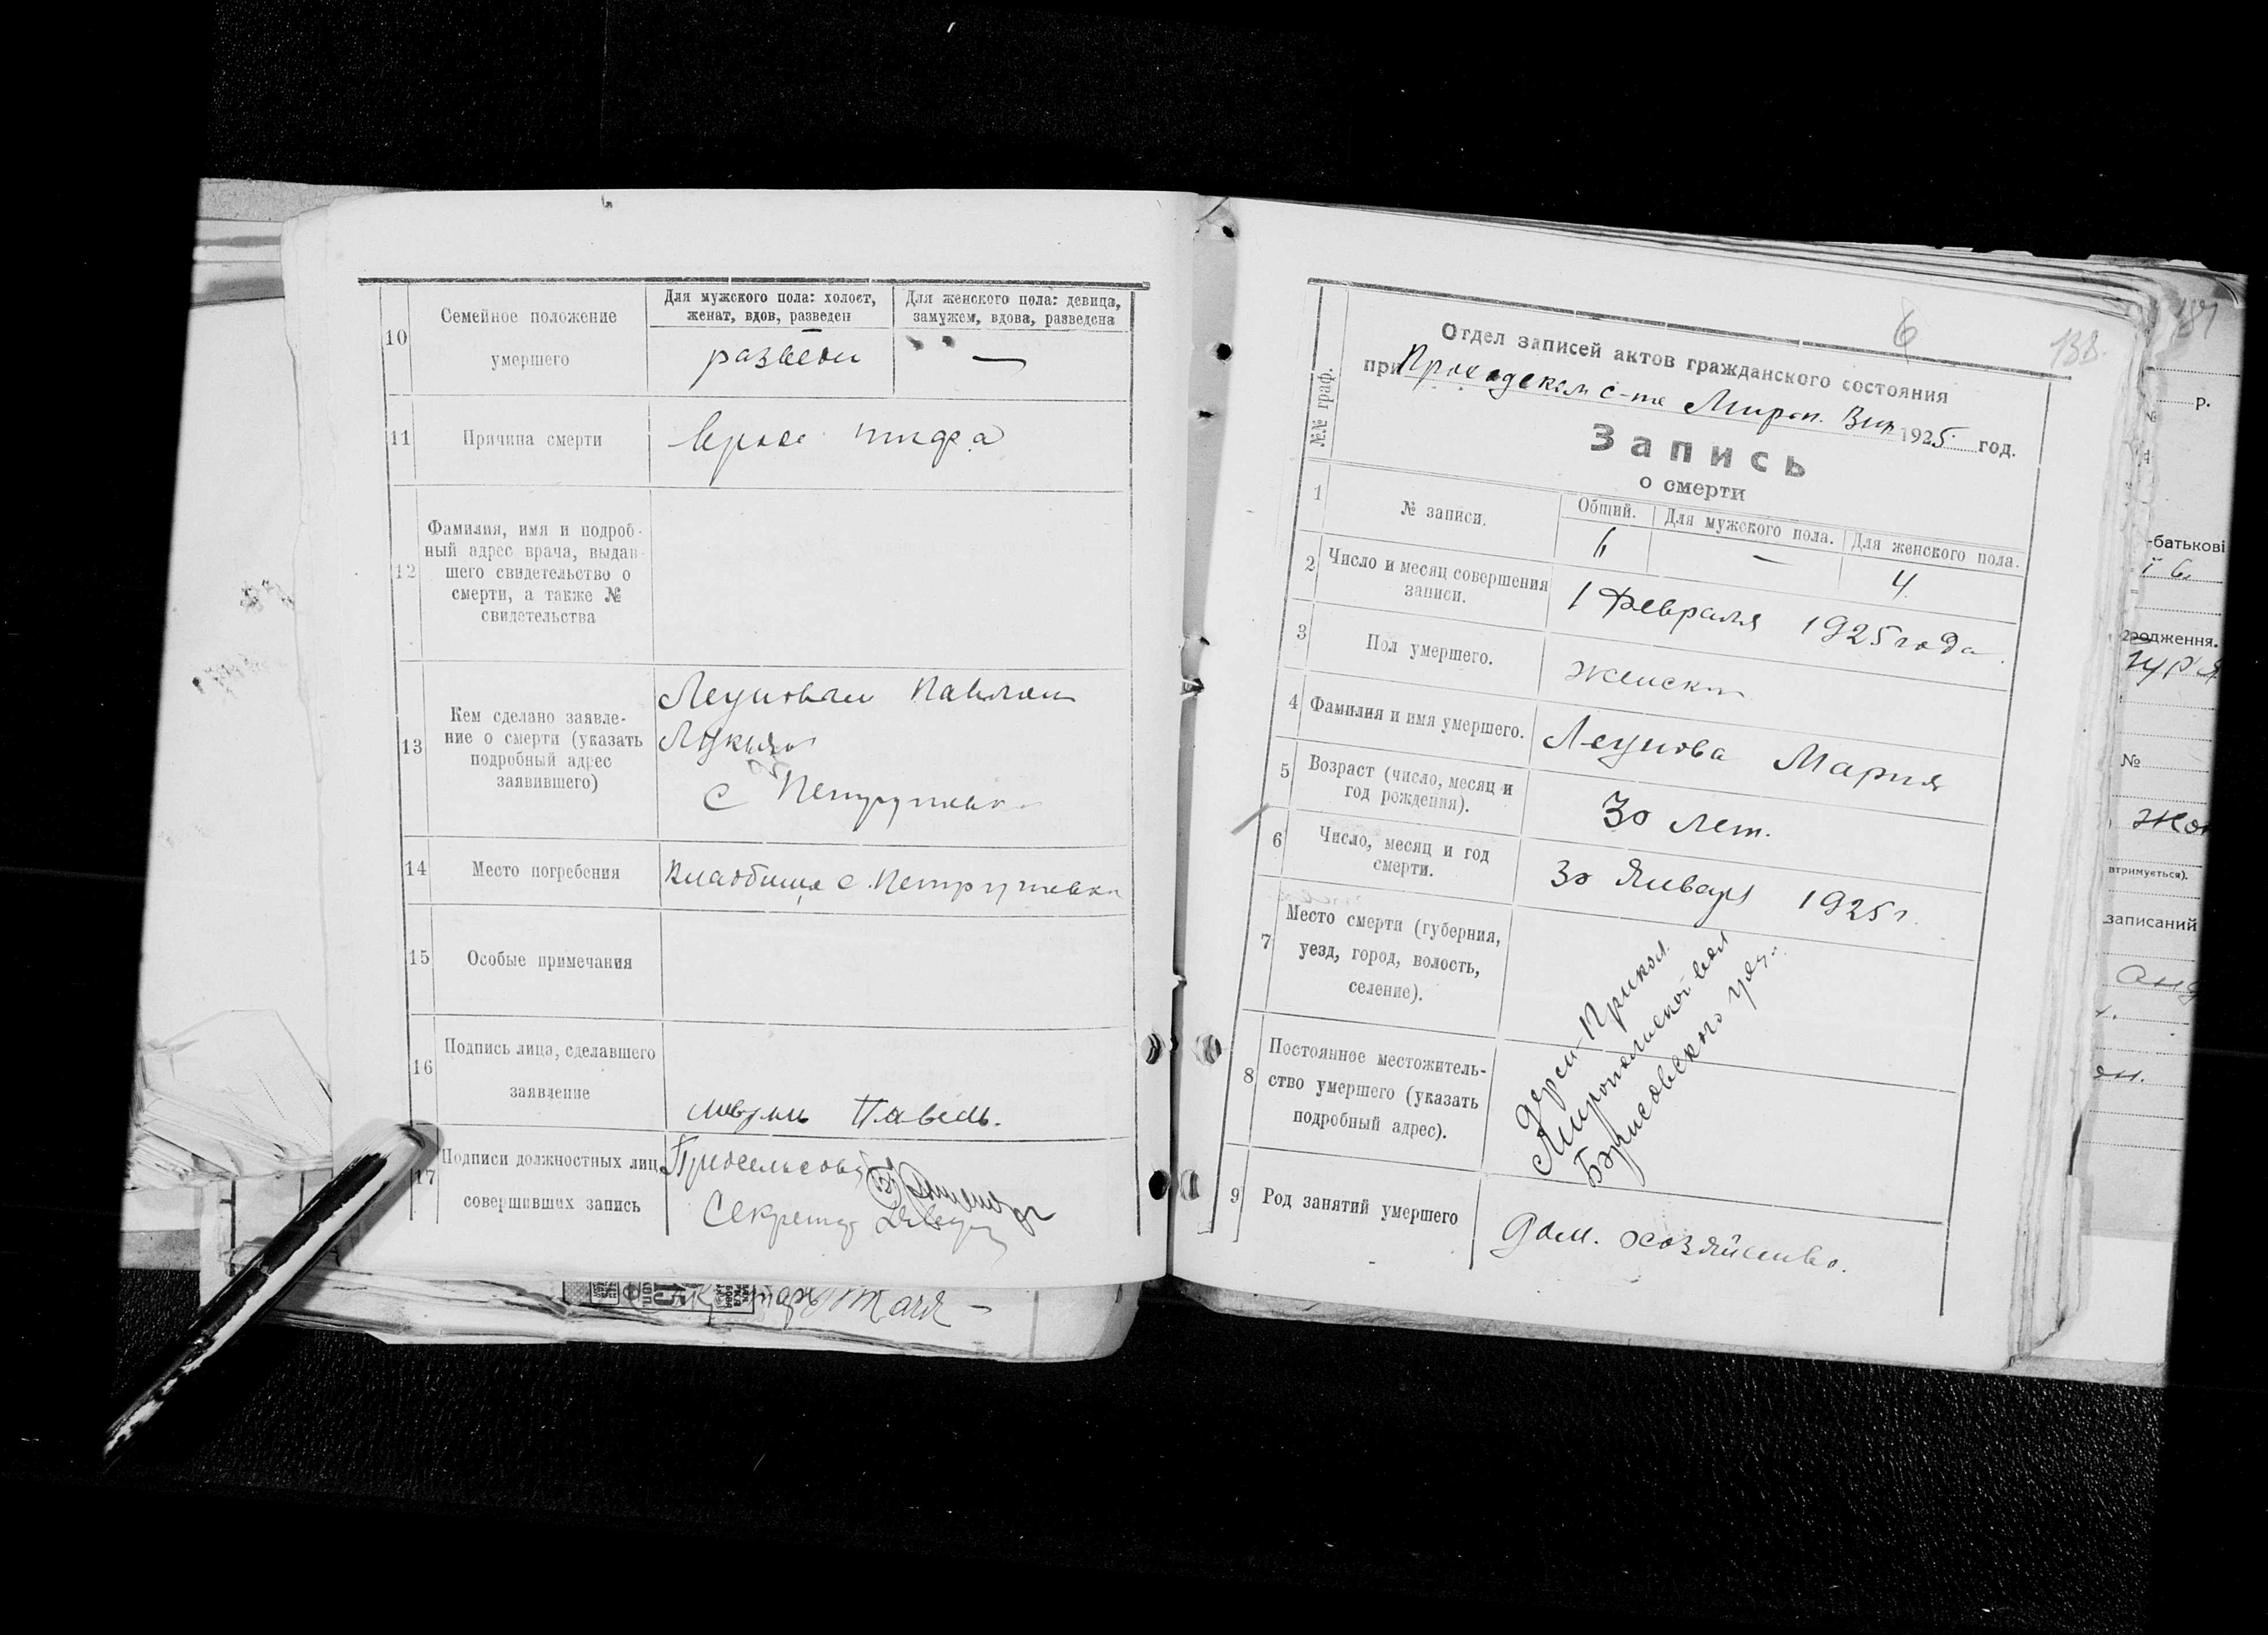 10
Семейное положение
умершего
Для мужского пола: холост,
женат, вдов, разведен
Для женского пола: девица,
замужем, вдова, разведена
разведен
—
11
Причина смерти
тифа
12
Фамилия, имя и подроб-
ный адрес врача, выдав-
шего свидетельство о
смерти, а также №
свидетельства
13
Кем сделано заявле-
ние о смерти (указать
подробный адрес
заявившего)
Леуновым Павлом
с Петрушевка
14
Место погребения
Кладбище с. Петрушевки
15
Особые примечания
16
Подпись лица, сделавшего
заявление
Павель.
17
Подписи должностных лиц,
совершивших запись
Предсельсовета
Секретарь
6
138.
№№ граф.
Отдел записей актов гражданского состояния
при с-те Мироп. 1925 год.
Запись
о смерти
1
№ записи.
Общий.
Для мужского пола.
Для женского пола.
6
—
4.
2
Число и месяц совершения
записи.
1 Февраля 1925 года.
3
Пол умершего.
женский
4
Фамилия и имя умершего.
Леунова Мария
5
Возраст (число, месяц и
год рождения).
30 лет.
6
Число, месяц и год
смерти.
30 Января 1925 г.
7
Место смерти (губерния,
уезд, город, волость,
селение).
8
Постоянное местожитель-
ство умершего (указать
подробный адрес).
Миропольской вол
Борисовского уезд.
9
Род занятий умершего
дом. хозяйство.
р.
№
-батькові
родження.
№
втримується).
записаний